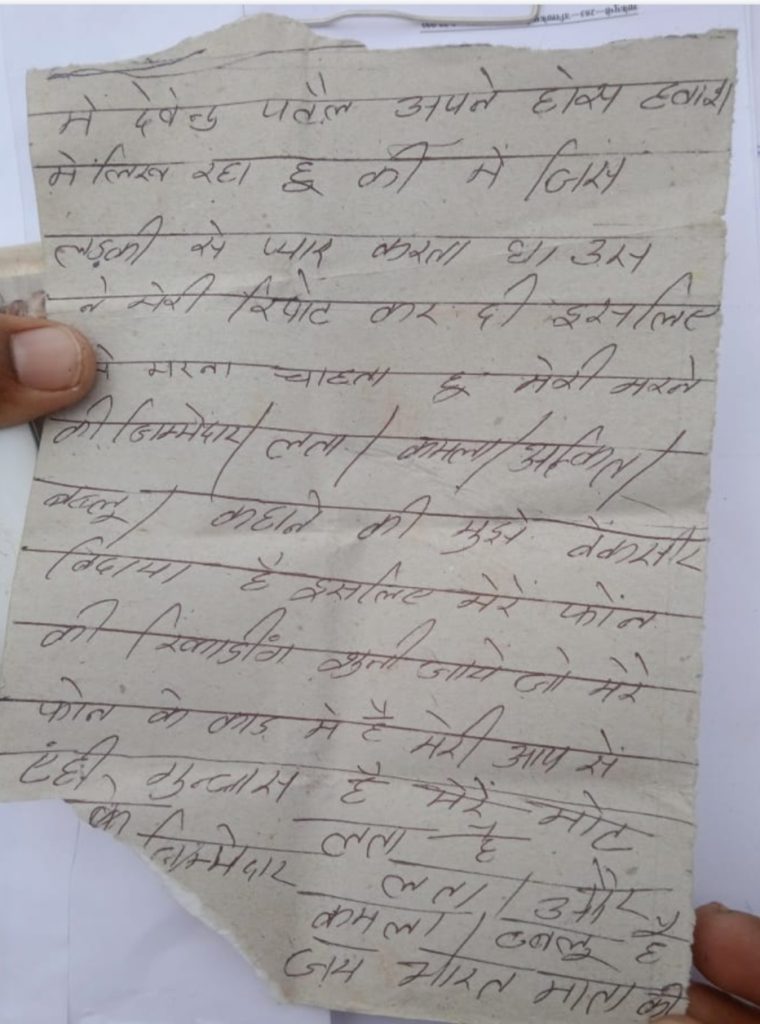 मे देवेन्द्र पटैल अपने होस हवास
मे लिख रहा हू की में जिस
लड़की से प्यार करता था उस
ने मेरी रिपोट कर दी इसलिए
मे मरना चाहता हू मेरी मरने
की जिम्मेदार/ लता/ कमला/अंकित/
/ की मुझे
है इसलिए मेरे फोन
की रिकाडींग सुनी जाये जो मेरे
फोन के काड मे है मेरी आप से
है मेरे मोट
के जिम्मेदार लता है
लता/ और
कमला/ डबलू है
जय भारत माता की